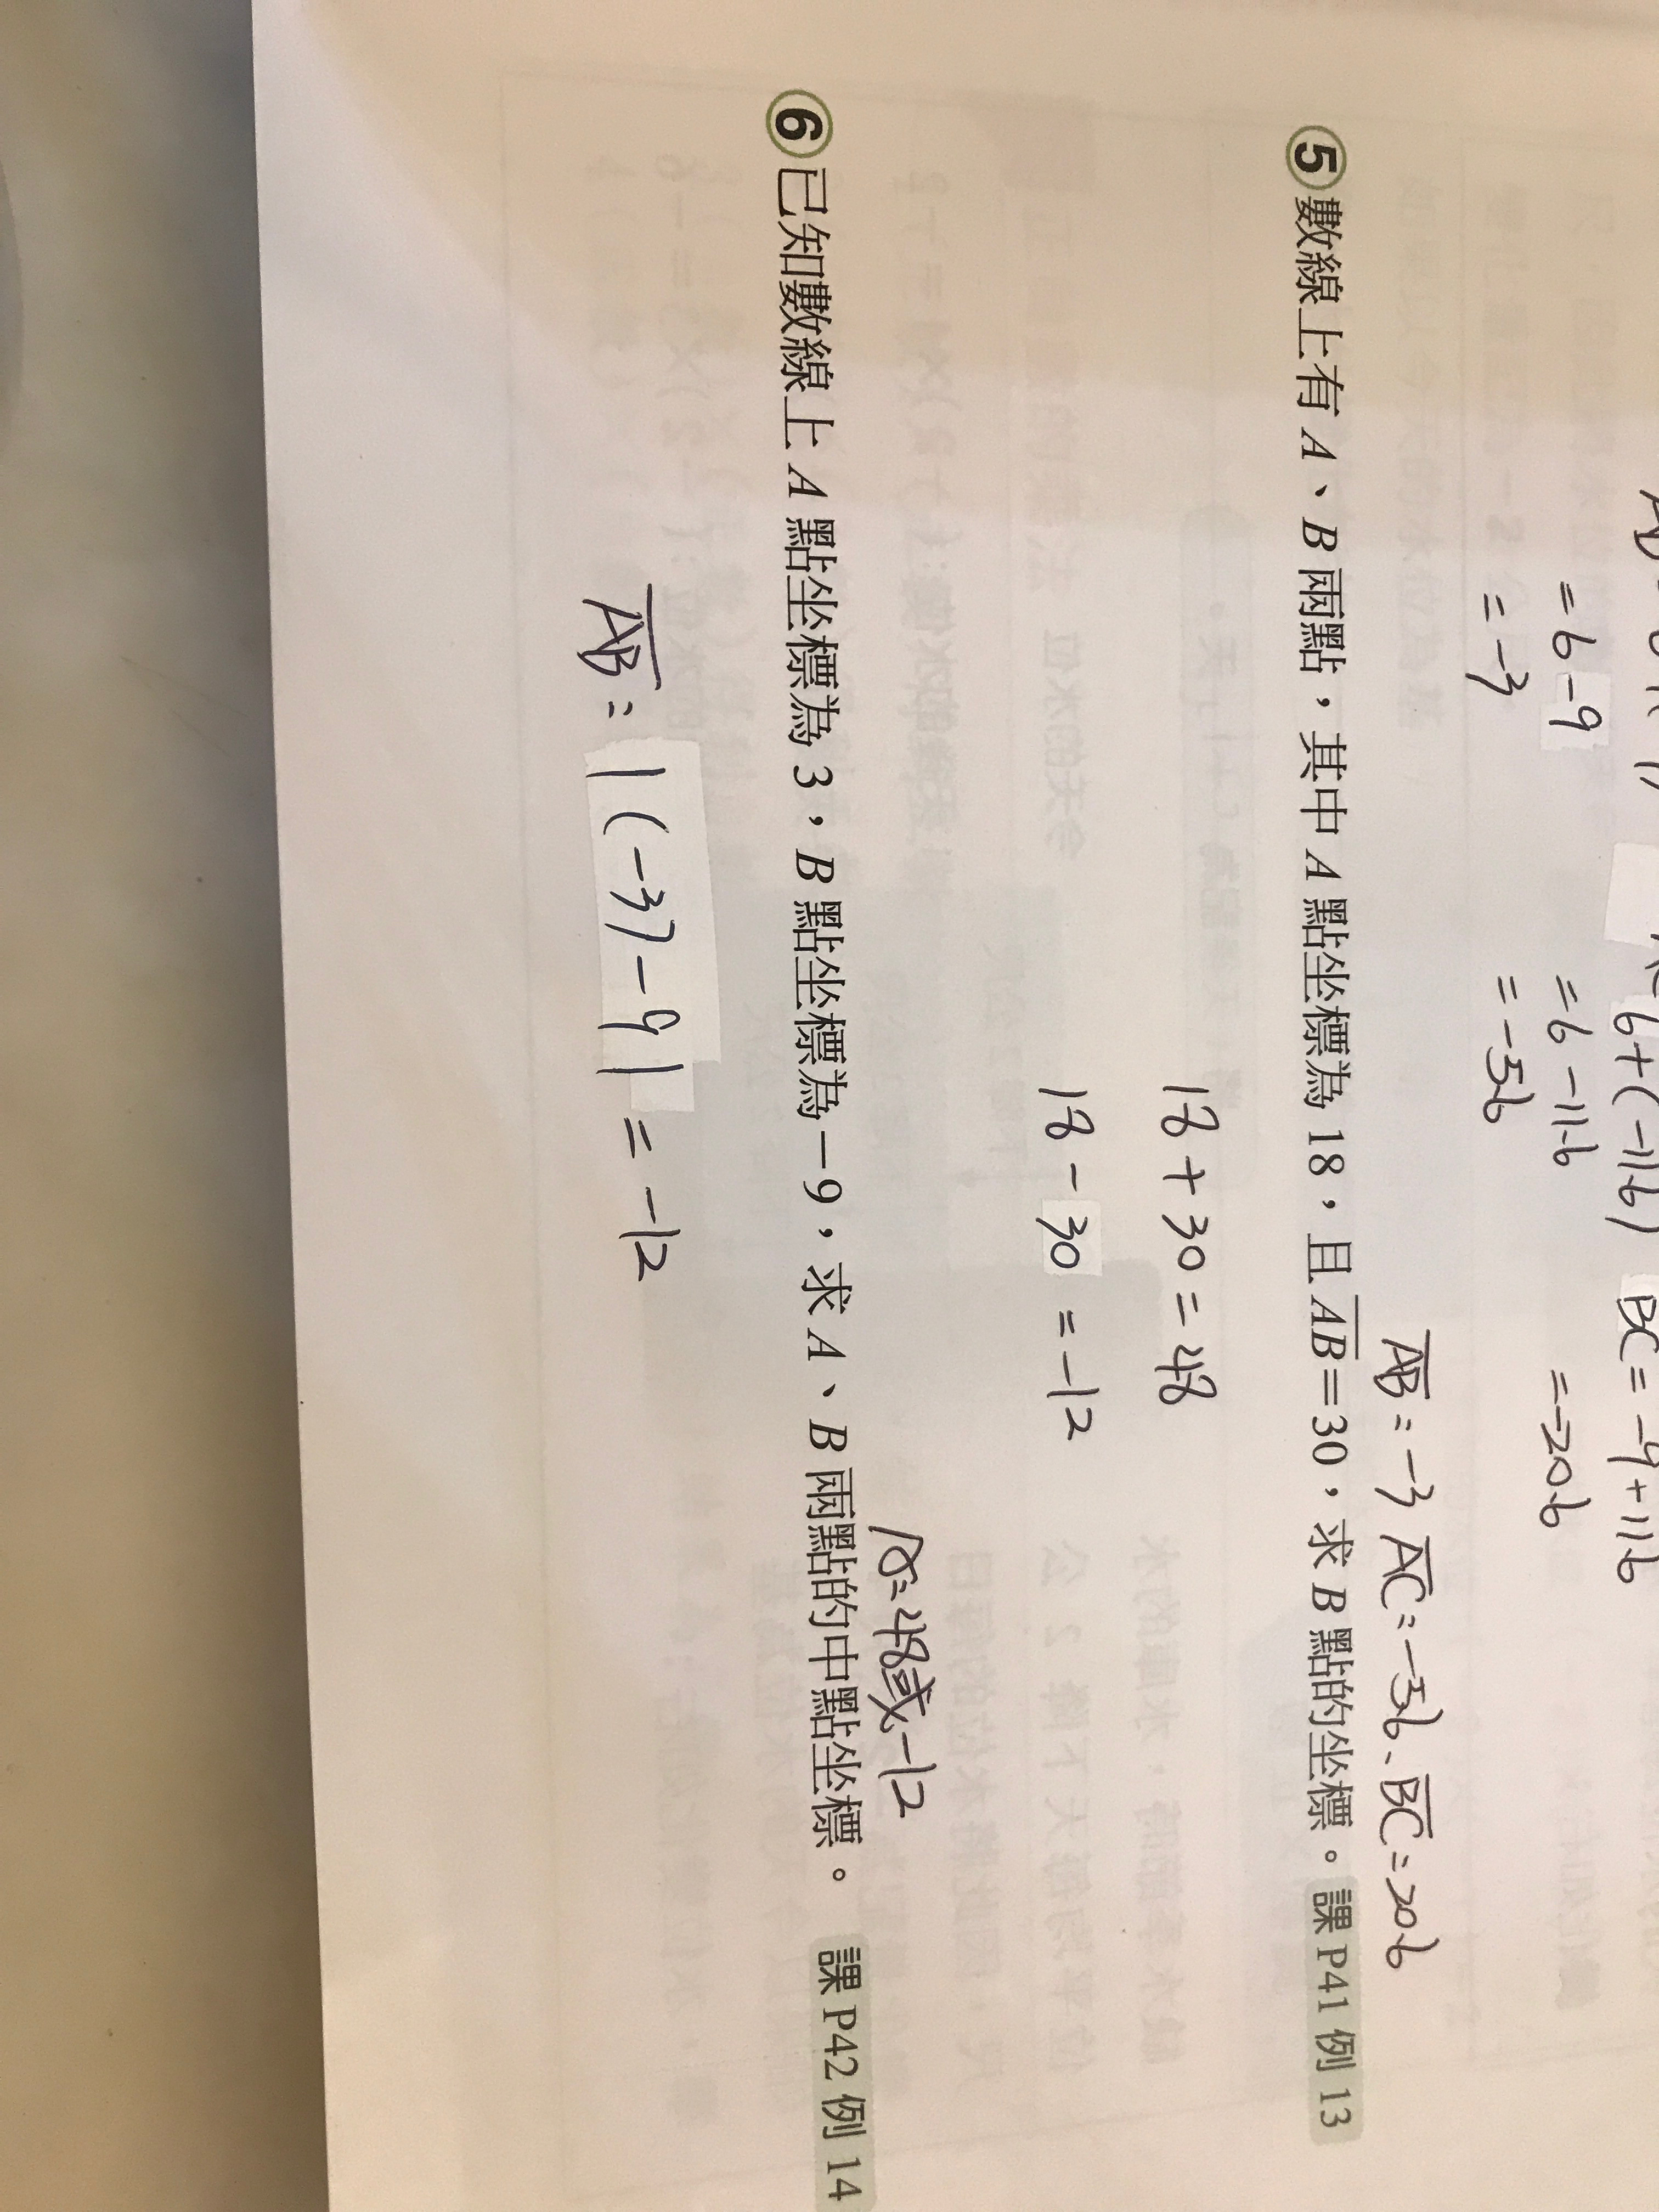 =6-9
=-3
6+(-11.6)
=6-11.6
=-5.6
BC=-9+11.6
=-20.6
AB=-3 AC=-5.6、BC=20.6
5 數線上有 A、B 兩點，其中 A 點坐標為 18，且 AB=30，求 B 點的坐標。 課 P41 例 13
18+30=48
18-30=-12
A:48或-12
6 已知數線上 A 點坐標為 3，B 點坐標為－9，求 A、B 兩點的中點坐標。 課 P42 例 14
AB=|(-3)-9|=-12